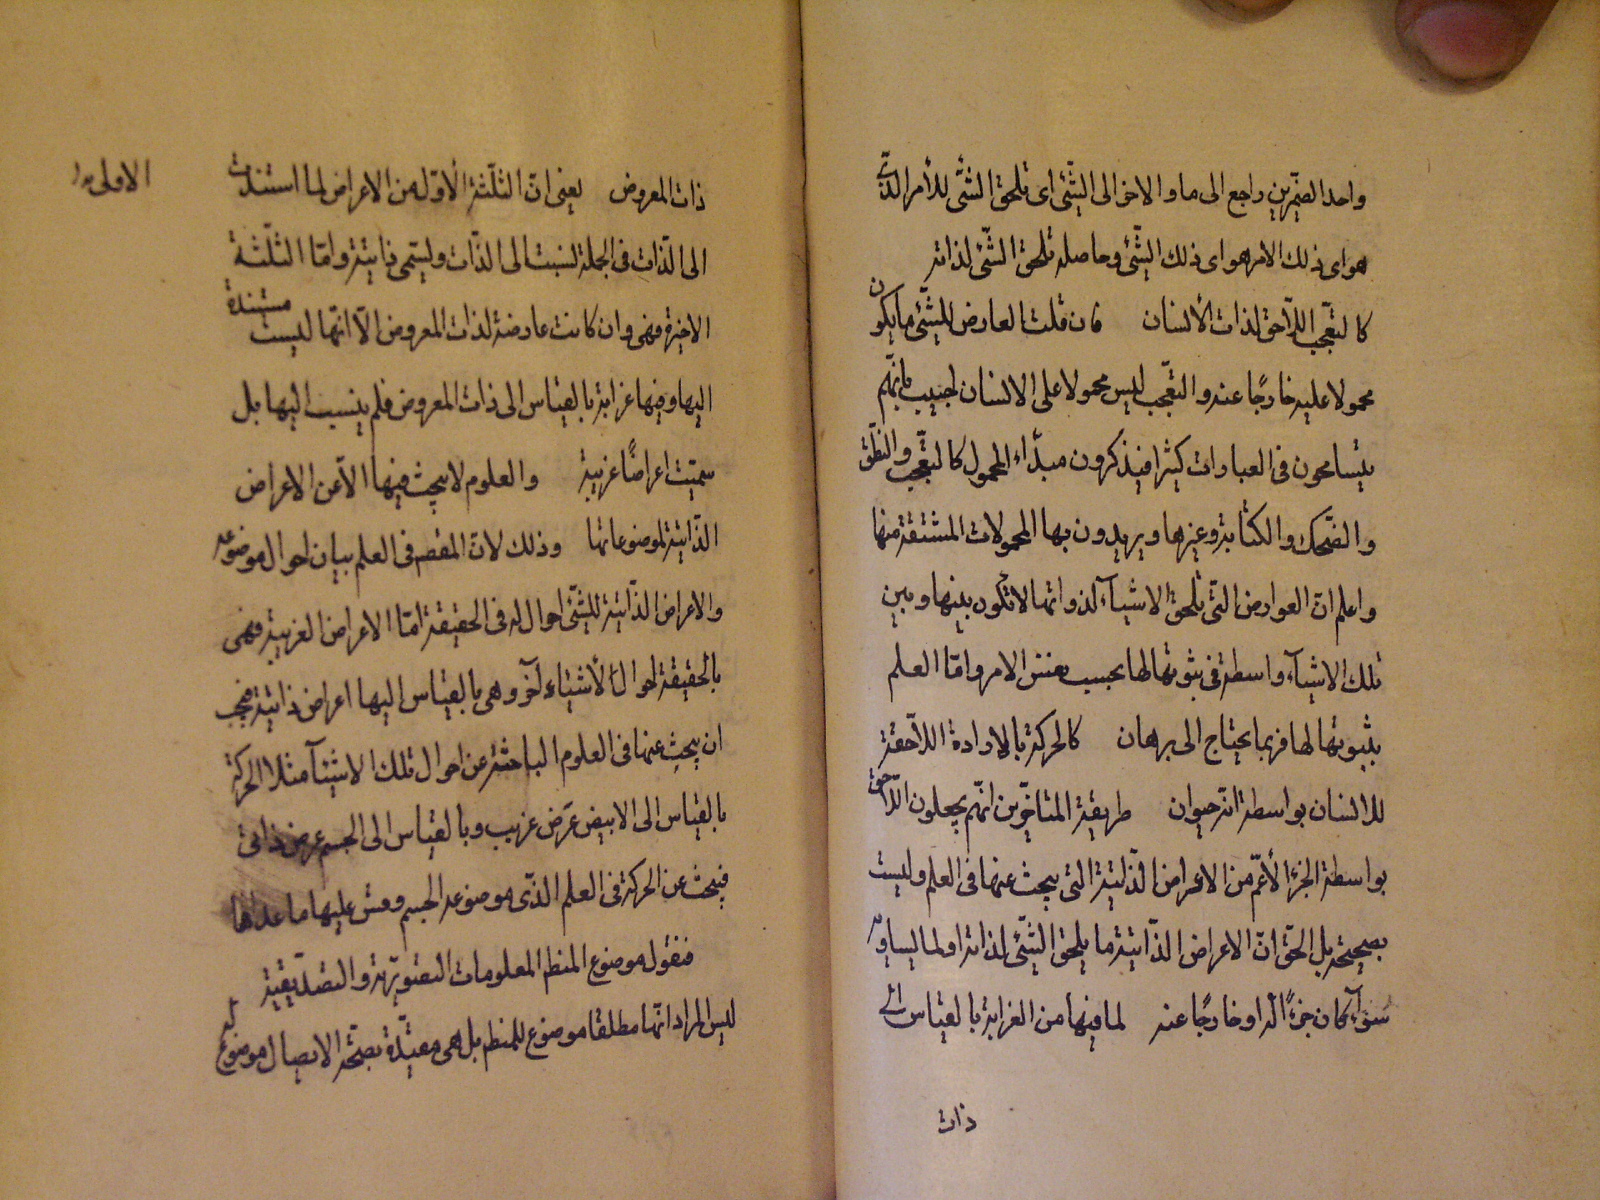 واحد الضميرين راجع الى ما والاخر الى الشئ اى تلحق الشئ للأمر الذى
هو اى ذلك الامر هو اى ذلك الشئ وحاصله تلحق الشئ لذاته
كالتعجب اللاحق لذات الأنسان فان قلت العارض للشئ ما يكون
محمولا عليه خارجًا عنه والتعجب ليس محمولا على الانسان اجيب بانهم
يتسامحون فى العبارات كثيرا فيذكرون مبدأ المحمول كالتعجب والنطق
والضحك والكتابة وغيرها ويريدون بها المحمولات المشتقة منها
واعلم ان العوارض التى تلحق الاشياء لذواتها لا تكون بينها وبين
تلك الاشياء واسطة فى ثبوتها لها بحسب نفس الامر واما العلم
بثبوتها لها فربما يحتاج الى برهان كالحركة بالارادة اللاحقة
للانسان بواسطة انه حيوان طريقة المتاخرين انهم يجعلون اللاحق
بواسطة الجزء الأعم من الاعراض الذاتية التى يبحث عنها فى العلم وليست
بصحيحة بل الحق ان الاعراض الذاتية ما يلحق الشئ لذاته او لما يساويه
سواء كان جزءًا له او خارجًا عنه لما فيها من الغرابة بالقياس الى
ذات
ذات المعروض يعنى ان الثلثة الأول من الاعراض لما استندت
الاولى
الى الذات فى الجملة نسبت الى الذات وليسمى ذاتية واما الثلثة
الاخيرة فهى وان كانت عارضة لذات المعروض الا انها ليست مستندة
اليها وفيها غرابة بالقياس الى ذات المعروض فلم ينسب اليها بل
سميت اعراضًا غريبة والعلوم لا يبحث فيها الا عن الاعراض
الذاتية لموضوعاتها وذلك لان المقصم فى العلم بيان احوال موضوعه
والاعراض الذاتية للشئ احوال له فى الحقيقة اما الاعراض الغريبة فهى
بالحقيقة احوال لأشياء أخر وهى بالقياس اليها اعراض ذاتية فيجب
ان يبحث عنها فى العلوم الباحثة عن احوال تلك الاشياء مثلا الحركة
بالقياس الى الابيض عرض غريب وبالقياس الى الجسم عرض ذاتى
فيبحث عن الحركة فى العلم الذى موضوعه الجسم وقس عليها ما عداها
فنقول موضوع المنطم المعلومات التصورية والتصديقية
ليس المراد انها مطلقا موضوع للمنطم بل هى مقيدة بصحة الايصال موضوع له